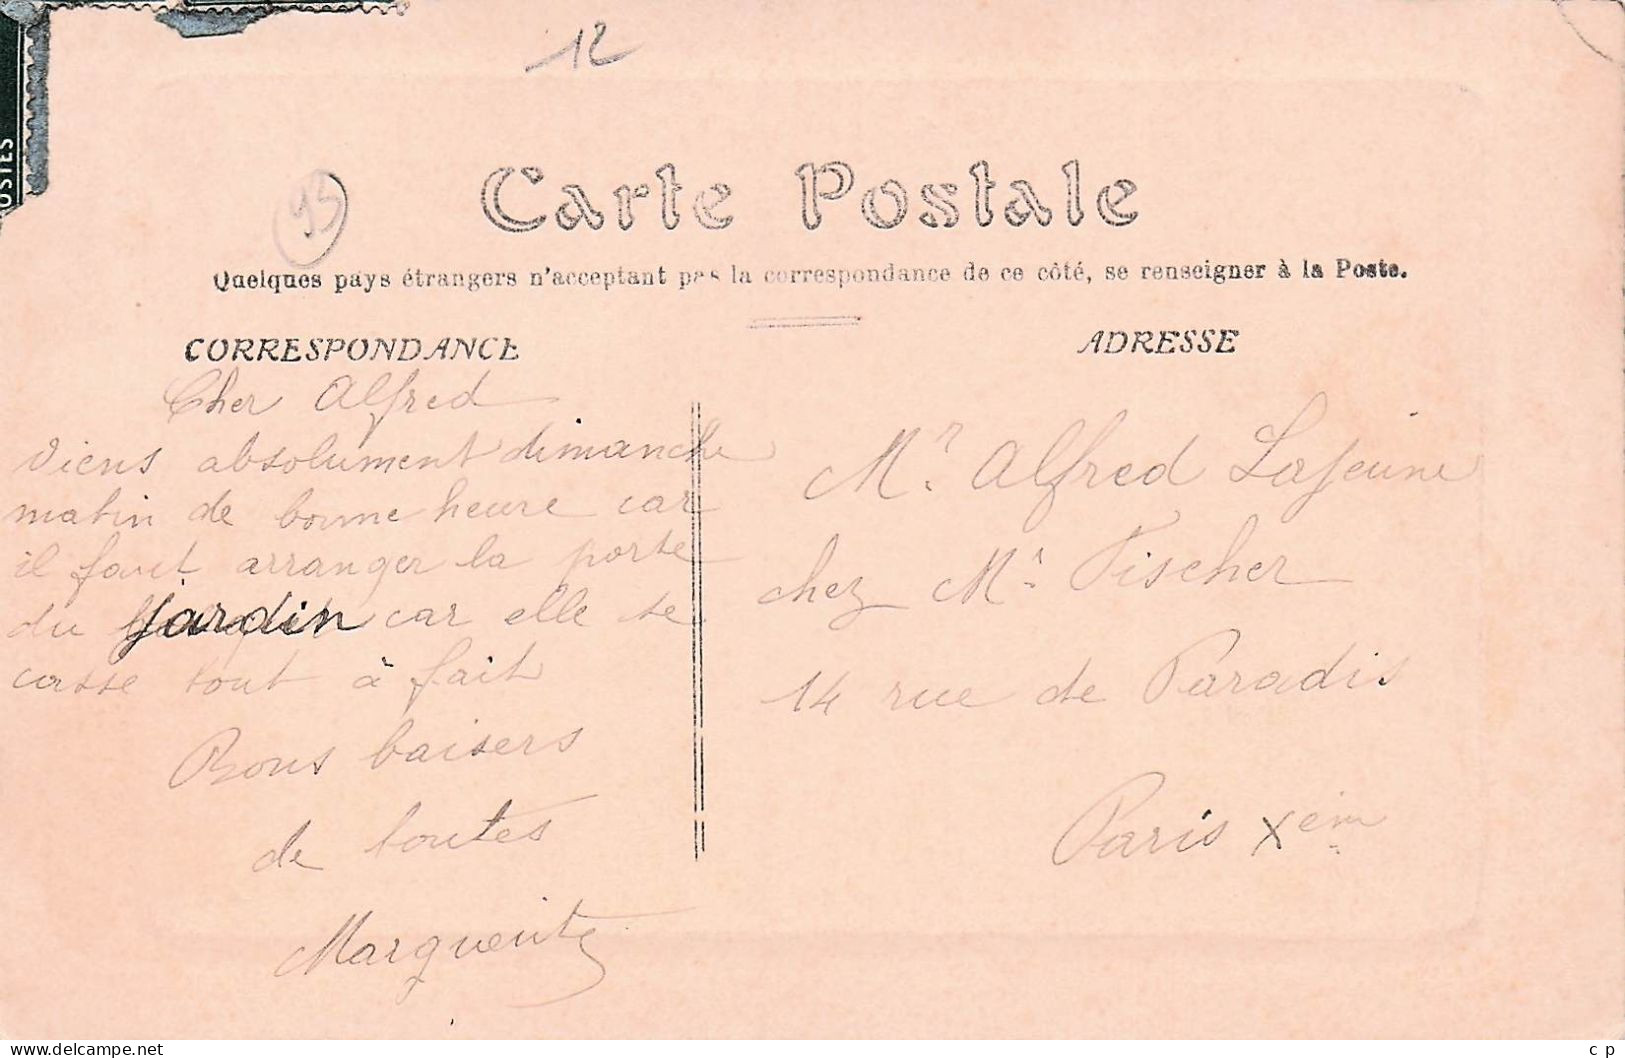 OSTES
12
95
Carte Postale
Quelques pays étrangers n'acceptant pas la correspondance de ce côté, se renseigner à la Poste.
CORRESPONDANCE
Cher Alfred
Viens absolument dimanche
matin de bonne heure car
il faut arranger la porte
du jardin car elle se
casse tout à fait
Bons baisers
de toutes
Marguerite
ADRESSE
Mr. Alfred Lajeune
chez Mr. Fischer
14 rue de Paradis
Paris Xem
www.delcampe.net
c p